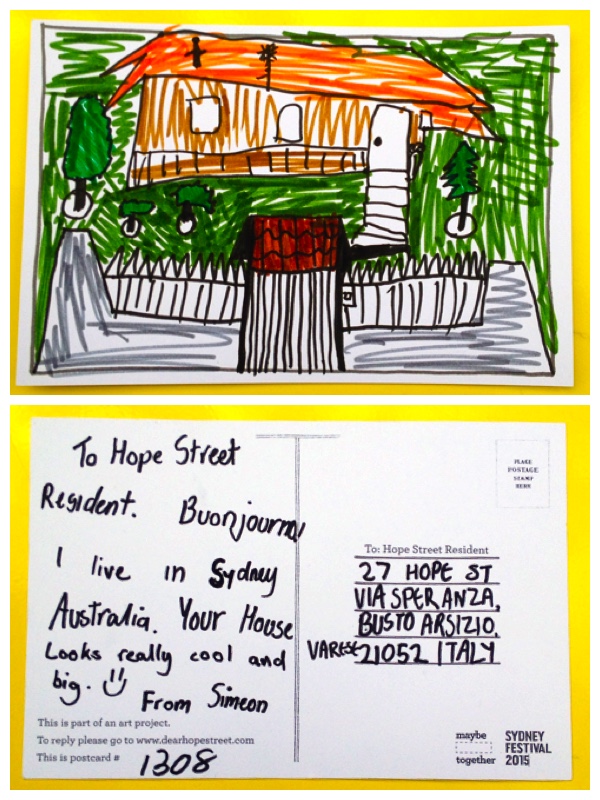 To Hope Street
Resident. Buonjourno
I live in Sydney
Australia. Your House
Looks really cool and
big.
From Simeon
This is part of an art project.
To reply please go to www.dearhopestreet.com
This is postcard # 1308
PLACE
POSTAGE
STAMP
HERE
To: Hope Street Resident
27 HOPE ST
VIA SPERANZA,
BUSTO ARSIZIO,
VARESE 21052 ITALY
maybe
together
SYDNEY
FESTIVAL
2015